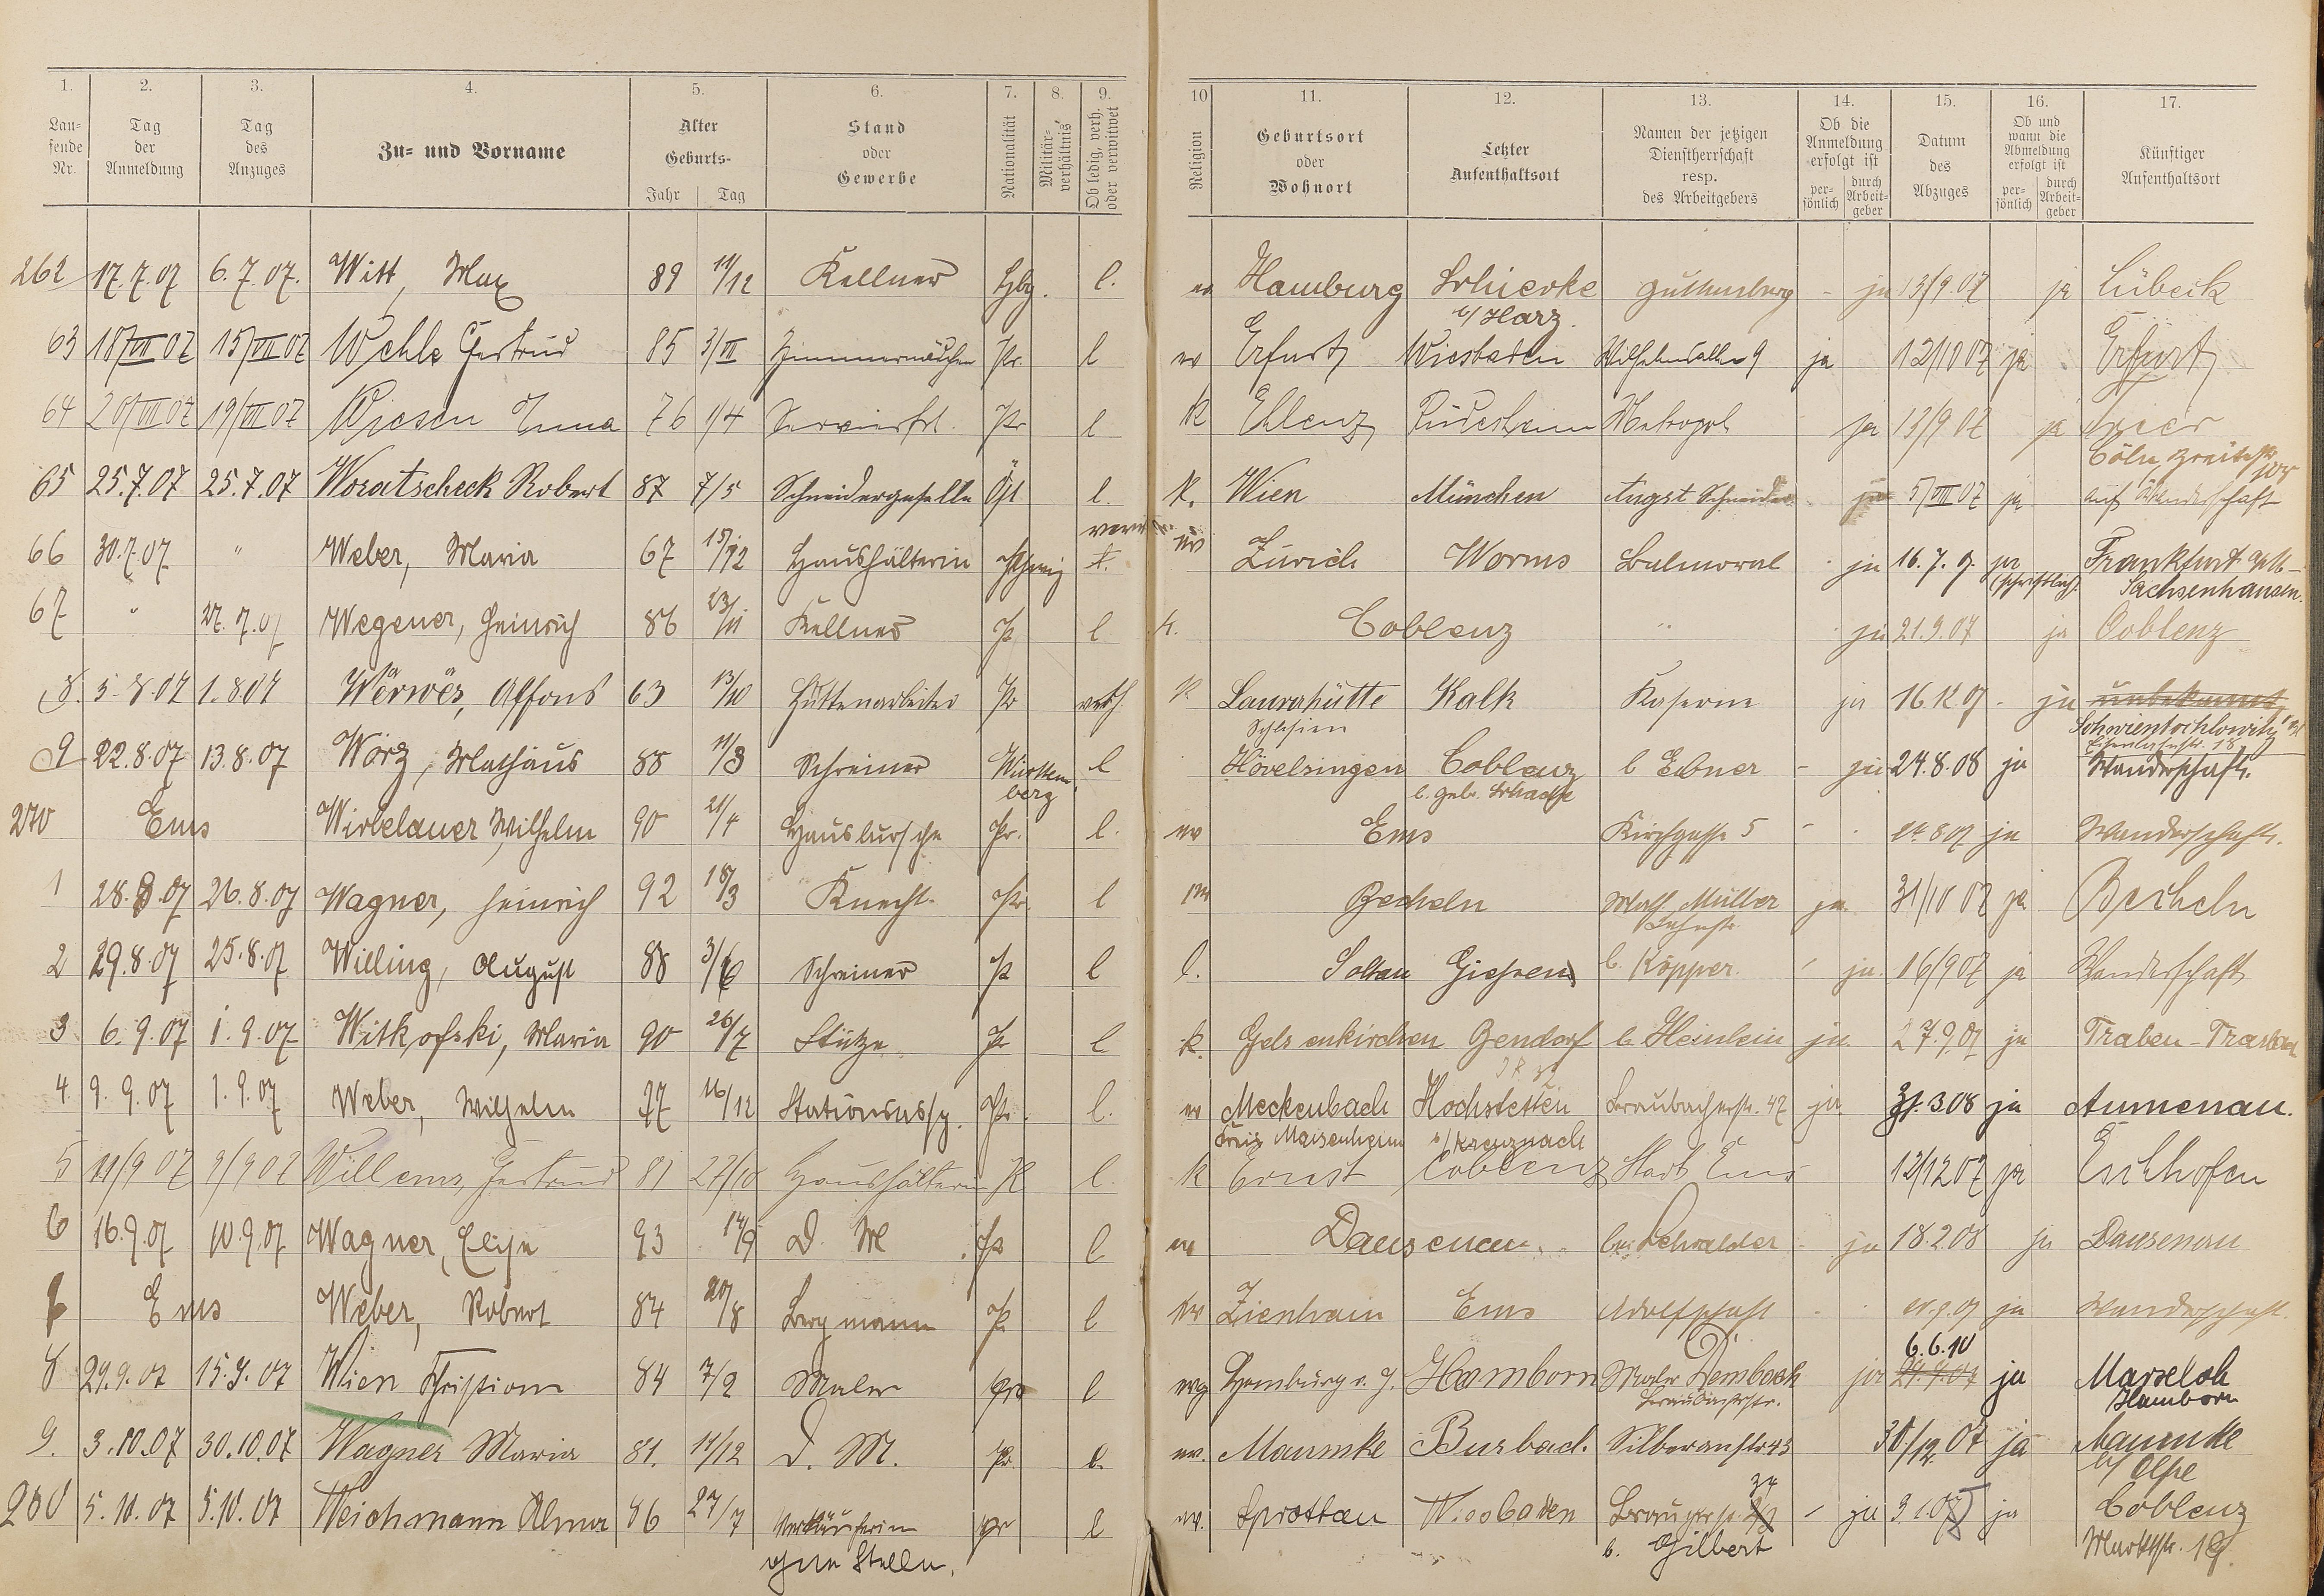 1. 2. 3. 4. 5. 6. 7. 8. 9. 10 11. 12. 13. 14. 15. 16. 17.
Lau- fende Nr. Tag der Anmeldung Tag des Anzuges Zu- und Vorname Alter Geburts- Jahr Tag Stand oder Gewerbe Nationalität Militär- verhältnis Ob ledig, verh. oder verwitwet Religion Geburtsort oder Wohnort Letzter Aufenthaltsort Namen der jetzigen Dienstherrschaft resp. des Arbeitgebers Ob die Anmeldung erfolgt ist per- sönlich durch Arbeit- geber Datum des Abzuges Ob und wann die Abmeldung erfolgt ist per- sönlich durch Arbeit- geber Künftiger Aufenthaltsort
262 17.7.07 6.7.07. Witt, Max 89 11/12 Kellner Hbg. l. ev Hamburg Schierke Guttenberg - ja 13/9.07 ja Lübeck
b/ Harz.
63 18/VII 07 15/VII 07 Wehle Gertrud 85 3/III Zimmermädchen Pr. l ev Erfurt Wiesbaden Wilhelmsallee 9 ja 12/10 07 ja Erfurt
64 20/VII 07 19/VII 07 Wiesen Anna 76 1/4 Servierfrl. Pr l K Ehlenz Rüdesheim Metropol ja 13/9 07 ja Trier
Cöln Breitestr
65 25.7.07 25.7.07 Woratscheck Robert 87 7/5 Schneidergeselle Öst l. K. Wien München August Schneider ja 5/VIII 07 ja auf Wanderschaft
66 30.7.07 " Weber, Maria 67 15/12 Haushälterin Schweiz l. ev Zürich Worms Balmoral ja 16.7.9. ja Frankfurt a/M-
(schriftlich) Sachsenhausen.
67 " 27.7.07 Wegener, Heinrich 86 23/11 Kellner Pr l k. Coblenz " ja 21.9.07 ja Coblenz
8. 5.8.07 1.8.07 Wërwës, Alfons 63 13/10 Hüttenarbeiter Pr verh. K Laurahütte Kalk Kaserne ja 16.12.07 - ja unbekannt
Schlesien Schwientochlowitz
Eisenbahnstr. 18
9 22.8.07 13.8.07 Wörz, Mathäus 88 11/3 Schreiner Württem- l Hövelsingen Coblenz b Ebner - ja 24.8.08 ja Wanderschaft.
berg b. Gebr. Schade
270 Ems Wirbelauer Wilhelm 90 21/4 Hausbursche Pr. l. ev Ems Kirchgasse 5 - 24.8.07 ja Wanderschaft.
1 28.8.07 26.8.07 Wagner, Heinrich 92 18/3 Knecht Pr. l ev Becheln Math. Müller ja 31/10 07 ja Becheln
Lahnstr.
2 29.8.07 25.8.07 Willing, August 88 3/6 Schreiner Pr l l. Soltau Giessen b. Köpper. - ja. 16/9 07 ja Wanderschaft
3 6.9.07 1.9.07 Witkofski, Maria 90 26/7 Stütze Pr l k. Gelsenkirchen Bendorf b. Heinlein ja. 27.9.07 ja Traben-Trarbach
4. 9.9.07 1.9.07 Weber, Wilhelm 77 16/12 Stationsassp. Pr. l. ev Meckenbach Hochstetten Braubacherstr. 47 ja 31.3.08 ja Aumenau.
Kreis Meisenheim b/Kreuznach
5 11/9 07 9/9 07 Willems, Gertrud 81 27/10 Haushälterin Pr l. K Ernst Coblenz Stadt Ems 12/12 07 ja Eschhofen
6 16.9.07 10.9.07 Wagner, Elise 93 14/9 D. M. Pr l ev Dausenau bei Schralder - ja 18.2.08 ja Dausenau
7 Ems Weber, Robert 84 20/8 Bergmann Pr l ev Zienhain Ems Adolfschaft ja Wanderschaft.
6.6.10
8 29.9.07 15.9.07 Wien Christian 84 7/2 Maler Pr l evg Homburg v. H. Hamborn Maler Dembach ja 29.9.07 ja Marxloh
Braubacherstr. Hamborn
9. 3.10.07 30.10.07 Wagner Maria 81. 11/12 D. M. Pr. l. ev. Maumke Burbach Silberaustr 43 30/12.07 ja Maumke
b/ Olpe
34
280 5.10.07 5.10.07 Weichmann Alma 86 27/7 Verkäuferin Pr l ev. Sprottau Wiesbaden - ja ja Coblenz
ohne Stelle. b. Gilbert Marktstr. 18.